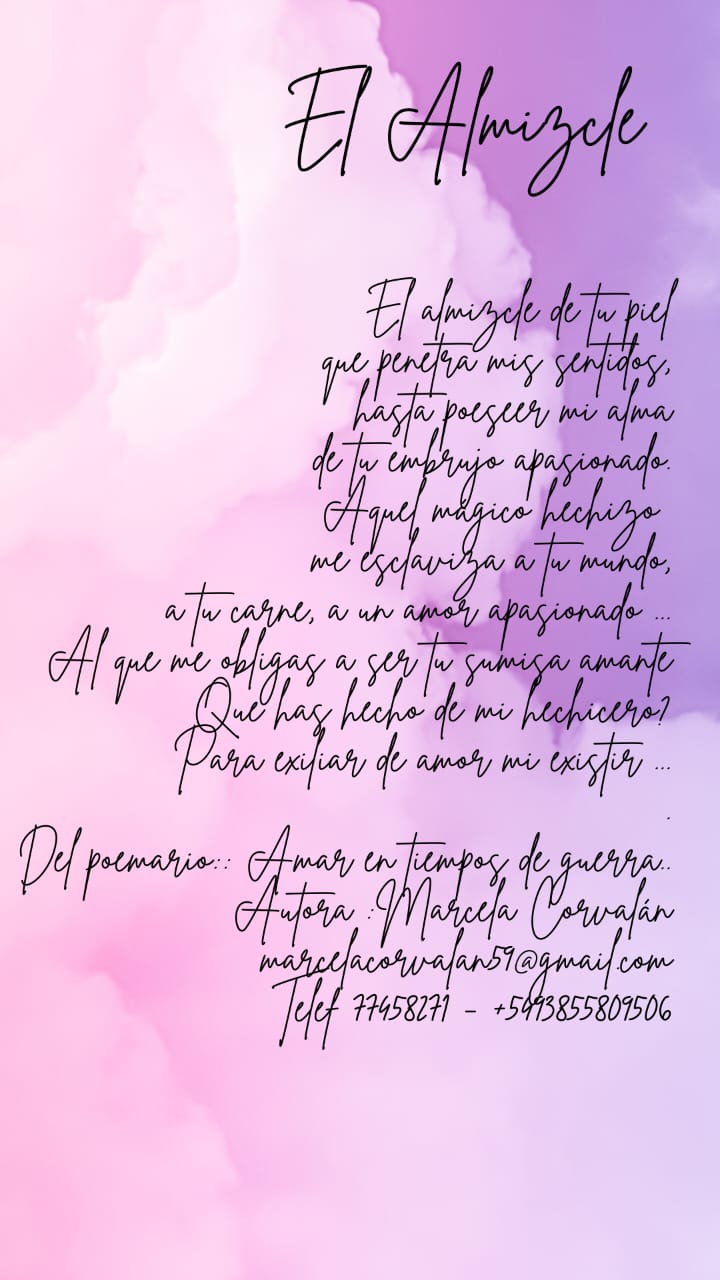 El Almizcle
El almizcle de tu piel
que penetra mis sentidos,
hasta poeseer mi alma
de tu embrujo apasionado.
Aquel mágico hechizo
me esclaviza a tu mundo,
a tu carne, a un amor apasionado ...
Al que me obligas a ser tu sumisa amante
Que has hecho de mi hechicero?
Para exiliar de amor mi existir ...
.
Del poemario:: Amar en tiempos de guerra..
Autora :Marcela Corvalán
marcelacorvalan59@gmail.com
Telef 77458271 - +5493855809506